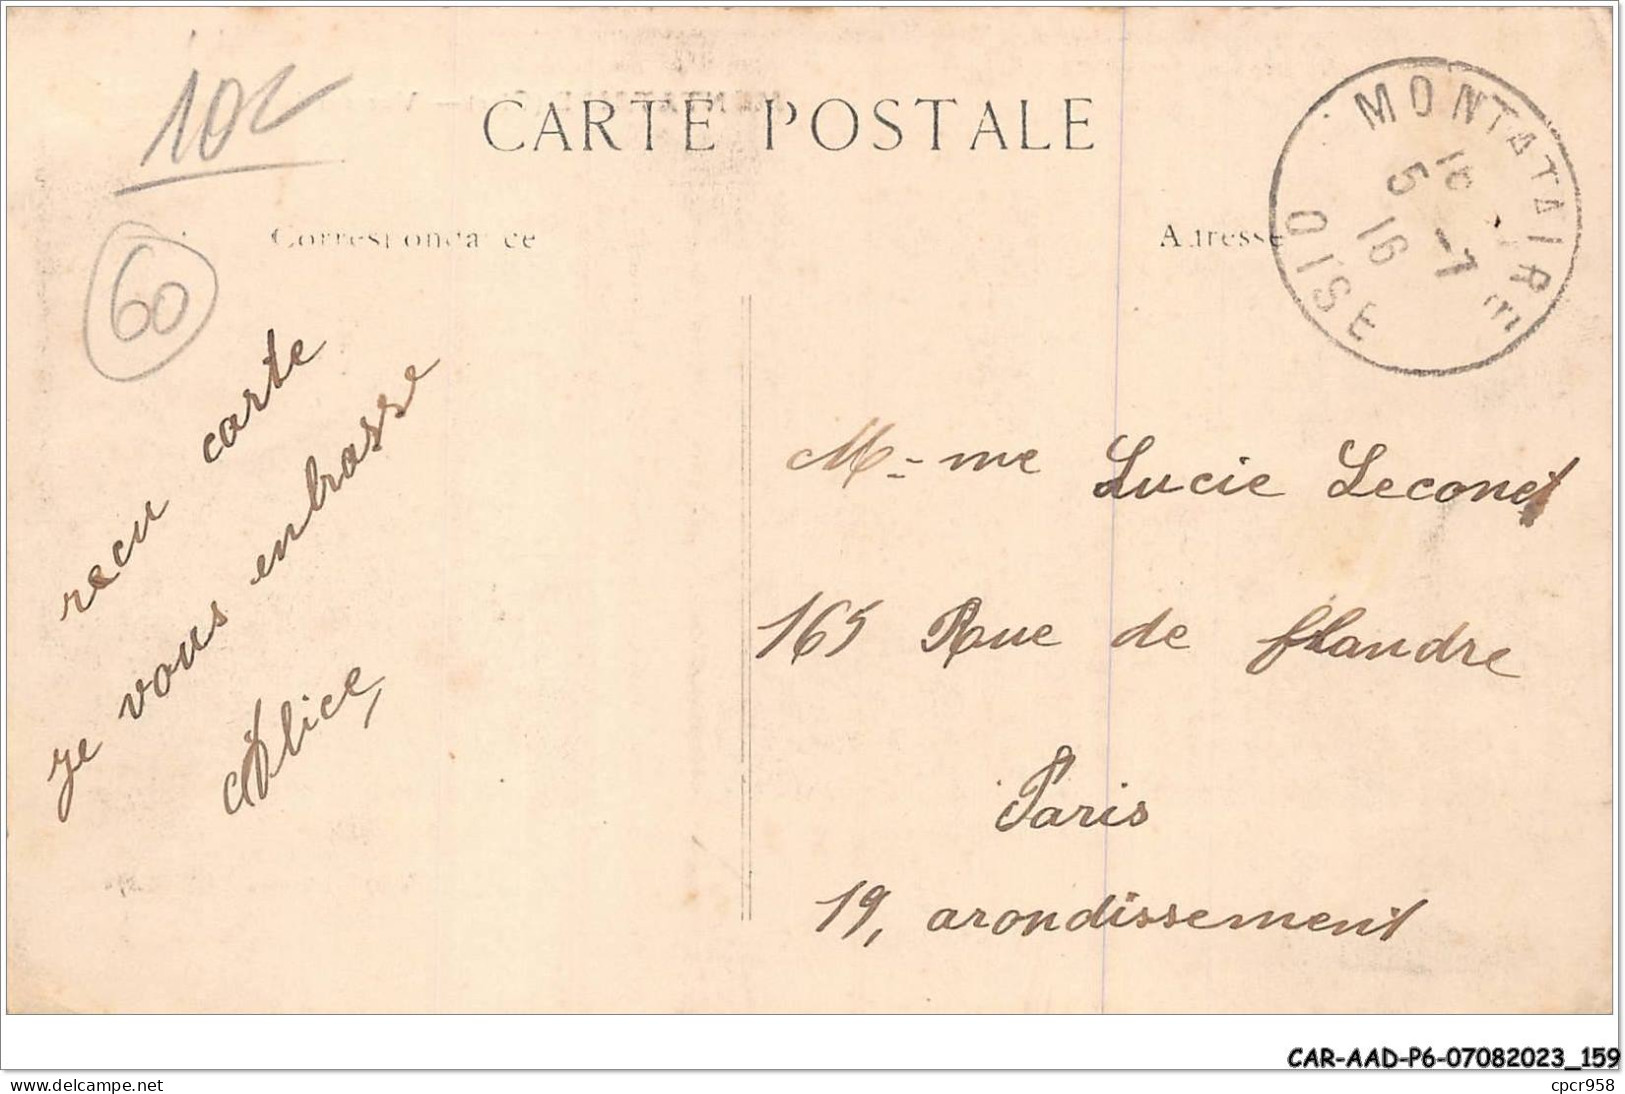 10€
CARTE POSTALE
MONTATAIRE
16
5 -7
16
OISE
Correspondance
Adresse
60
recu carte
je vous enbrasse
Alice,
M-me Lucie Leconet
165 Rue de flandre
Paris
19, arondissement
CAR-AAD-P6-07082023_159
www.delcampe.net
cpcr958